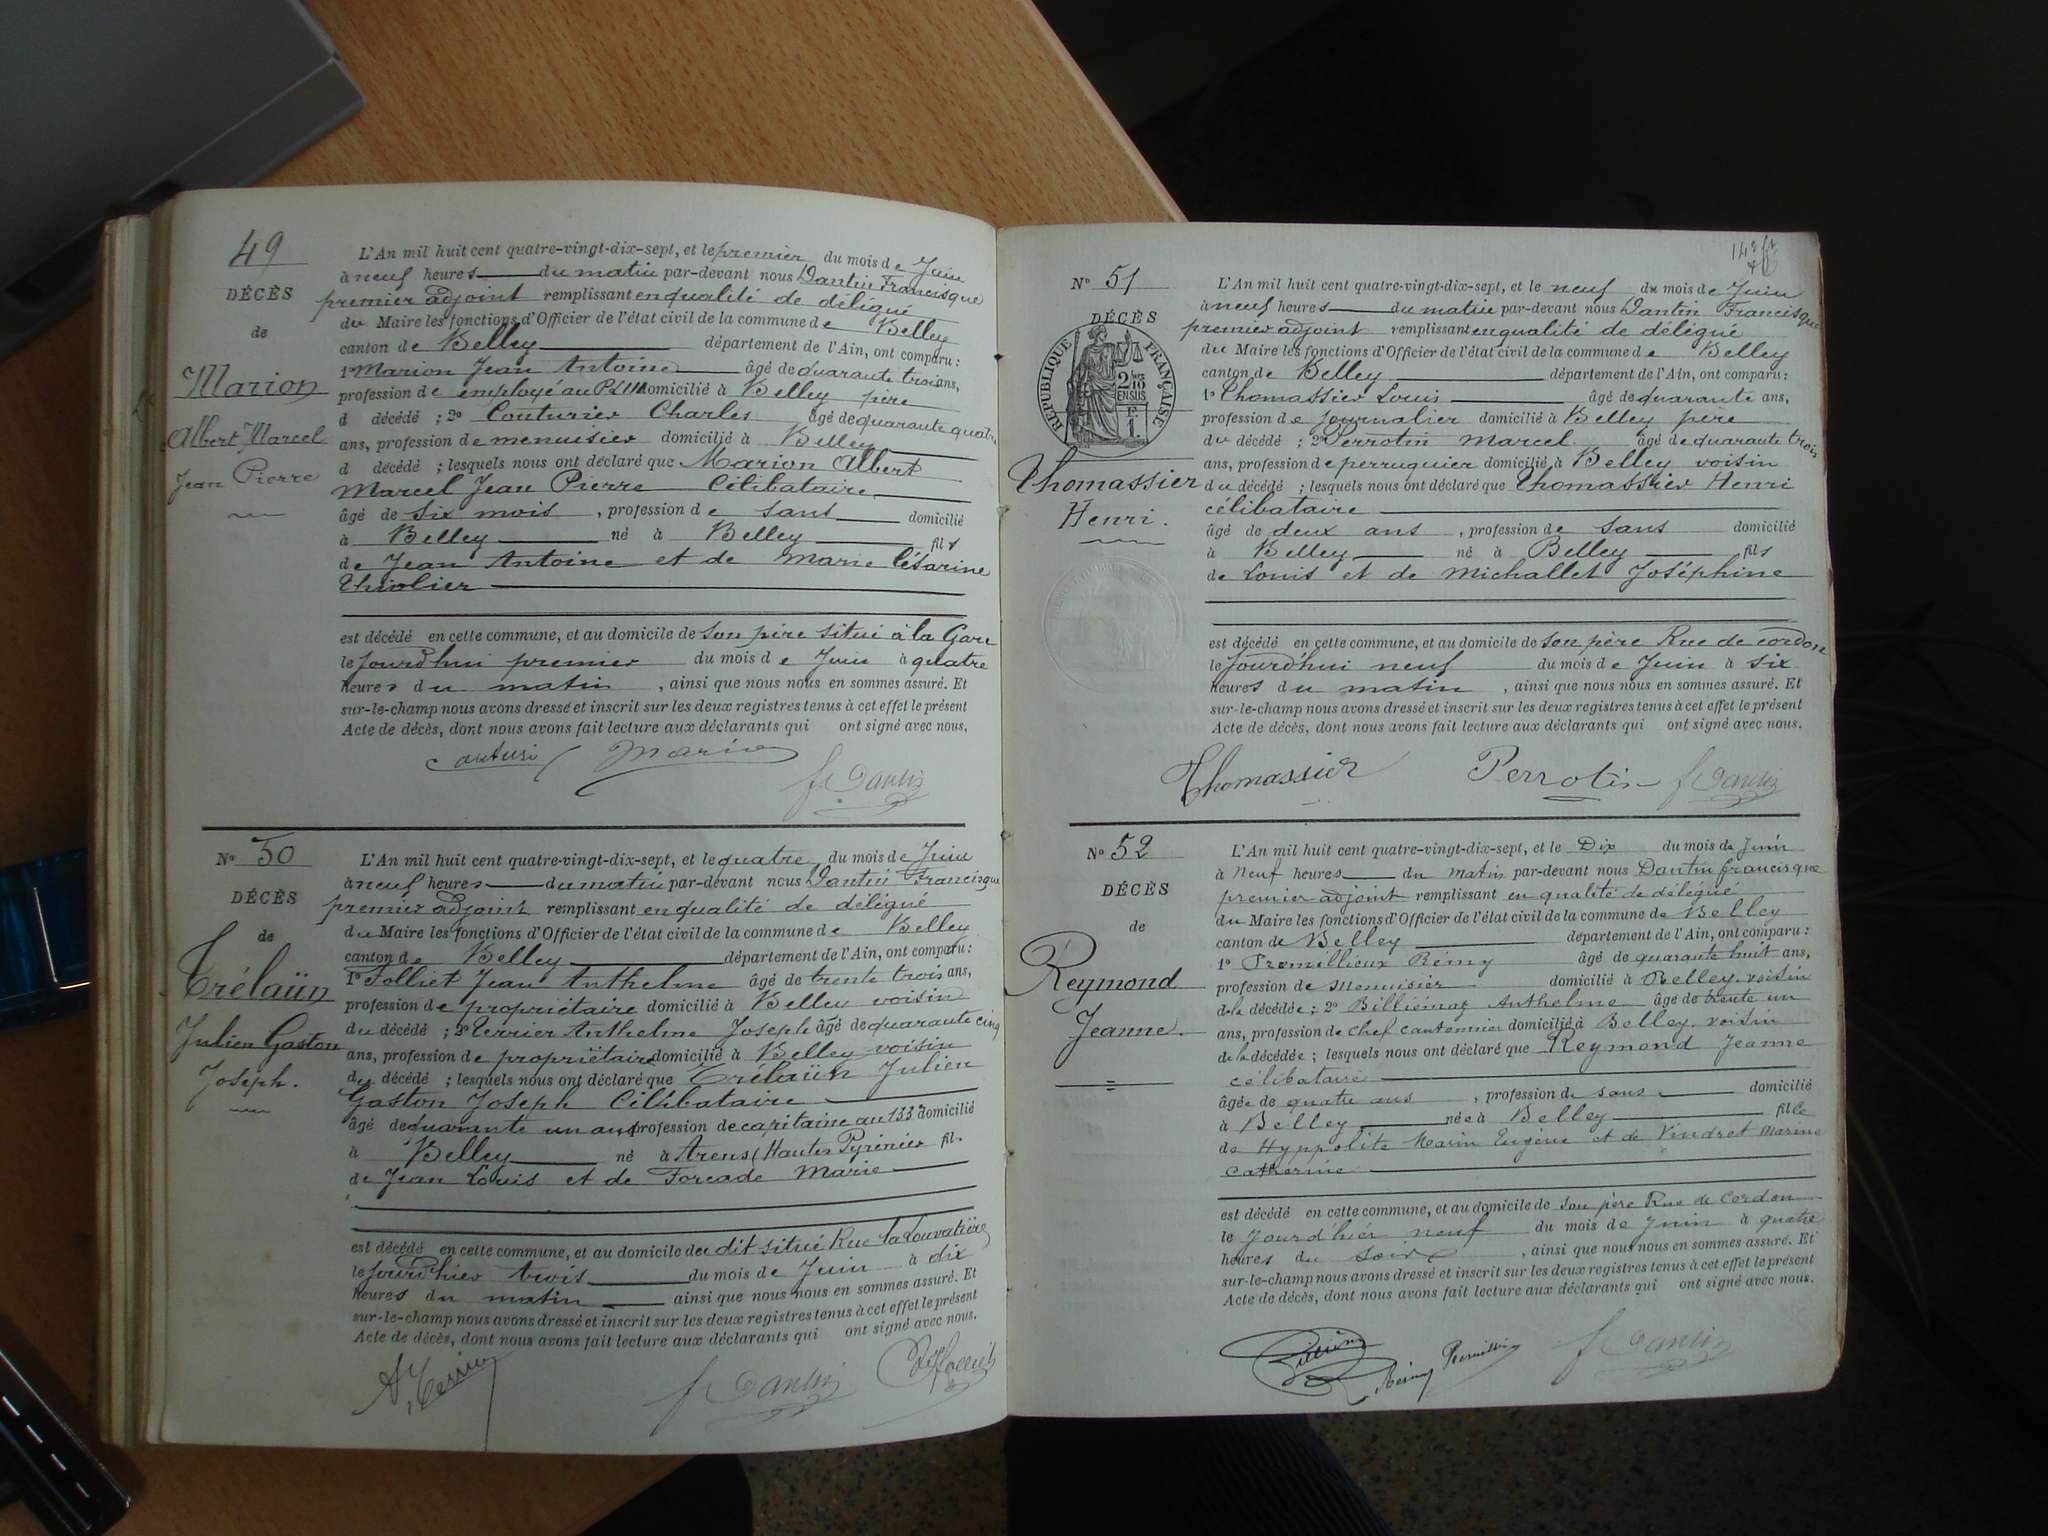 49
DÉCÈS
de
Marion
Albert Marcel
Jean Pierre
L'An mil huit cent quatre-vingt-dix-sept, et le premier du mois de Juin
à neuf heures du matin par-devant nous Dantin Francisque
premier adjoint remplissant en qualité de délégué
du Maire les fonctions d'Officier de l'état civil de la commune de Belley
canton de Belley département de l'Ain, ont comparu :
1o Marion Jean Antoine âgé de quarante trois ans,
profession de employé au P.L.M. domicilié à Belley père
d décédé ; 2o Couturier Charles âgé de quarante quatre
ans, profession de menuisier domicilié à Belley
d décédé ; lesquels nous ont déclaré que Marion Albert
Marcel Jean Pierre Célibataire
âgé de six mois, profession de sans domicilié
à Belley né à Belley fils
de Jean Antoine et de Marie Césarine
Thiolier
est décédé en cette commune, et au domicile de son père situé à la Gare
le jourd'hui premier du mois de Juin à quatre
heures du matin, ainsi que nous nous en sommes assuré. Et
sur-le-champ nous avons dressé et inscrit sur les deux registres tenus à cet effet le présent
Acte de décès, dont nous avons fait lecture aux déclarants qui ont signé avec nous.
Marion
f Dantin
No 50
DÉCÈS
de
Trélaün
Julien Gaston
Joseph.
L'An mil huit cent quatre-vingt-dix-sept, et le quatre du mois de Juin
à neuf heures du matin par-devant nous Dantin Francisque
premier adjoint remplissant en qualité de délégué
du Maire les fonctions d'Officier de l'état civil de la commune de Belley
canton de Belley département de l'Ain, ont comparu :
1o Folliet Jean Anthelme âgé de trente trois ans,
profession de propriétaire domicilié à Belley voisin
du décédé ; 2o Terrier Anthelme Joseph âgé de quarante cinq
ans, profession de propriétaire domicilié à Belley voisin
du décédé ; lesquels nous ont déclaré que Trélaün Julien
Gaston Joseph Célibataire
âgé de quarante un ans profession de capitaine au 133e domicilié
à Belley né à Arens (Hautes Pyrénées fils
de Jean Louis et de Forcade Marie
est décédé en cette commune, et au domicile du dit situé Rue la Louvatière
le jourd'hier trois du mois de Juin à dix
heures du matin ainsi que nous nous en sommes assuré. Et
sur-le-champ nous avons dressé et inscrit sur les deux registres tenus à cet effet le présent
Acte de décès, dont nous avons fait lecture aux déclarants qui ont signé avec nous.
f Dantin
No 51
DÉCÈS
RÉPUBLIQUE FRANÇAISE
2/10
EN SUS
Thomassier
Henri.
L'An mil huit cent quatre-vingt-dix-sept, et le neuf du mois de Juin
à neuf heures du matin par-devant nous Dantin Francisque
premier adjoint remplissant en qualité de délégué
du Maire les fonctions d'Officier de l'état civil de la commune de Belley
canton de Belley département de l'Ain, ont comparu :
1o Thomassier Louis âgé de quarante ans,
profession de journalier domicilié à Belley père
du décédé ; 2o Perrotin Marcel âgé de quarante trois
ans, profession de perruquier domicilié à Belley voisin
du décédé ; lesquels nous ont déclaré que Thomassier Henri
célibataire
âgé de deux ans, profession de sans domicilié
à Belley né à Belley fils
de Louis et de Michallet Joséphine
est décédé en cette commune, et au domicile de son père Rue de cordon
le jourd'hui neuf du mois de Juin à six
heures du matin, ainsi que nous nous en sommes assuré. Et
sur-le-champ nous avons dressé et inscrit sur les deux registres tenus à cet effet le présent
Acte de décès, dont nous avons fait lecture aux déclarants qui ont signé avec nous.
Thomassier Perrotin f Dantin
No 52
DÉCÈS
de
Reymond
Jeanne.
L'An mil huit cent quatre-vingt-dix-sept, et le Dix du mois de Juin
à Neuf heures du matin par-devant nous Dantin francisque
premier adjoint remplissant en qualité de délégué
du Maire les fonctions d'Officier de l'état civil de la commune de Belley
canton de Belley département de l'Ain, ont comparu :
1o Promillieux Rémy âgé de quarante huit ans,
profession de Menuisier domicilié à Belley voisin
de la décédée ; 2o Billiémaz Anthelme âgé de trente un
ans, profession de chef cantonnier domicilié à Belley voisin
de la décédée ; lesquels nous ont déclaré que Reymond Jeanne
célibataire
âgée de quatre ans, profession de sans domicilié
à Belley née à Belley fille
de Hyppolite Marin Eugène et de Vindret Marine
Catherine
est décédé en cette commune, et au domicile de son père Rue de Cordon
le jourd'hier neuf du mois de Juin à quatre
heures du soir, ainsi que nous nous en sommes assuré. Et
sur-le-champ nous avons dressé et inscrit sur les deux registres tenus à cet effet le présent
Acte de décès, dont nous avons fait lecture aux déclarants qui ont signé avec nous.
f Dantin